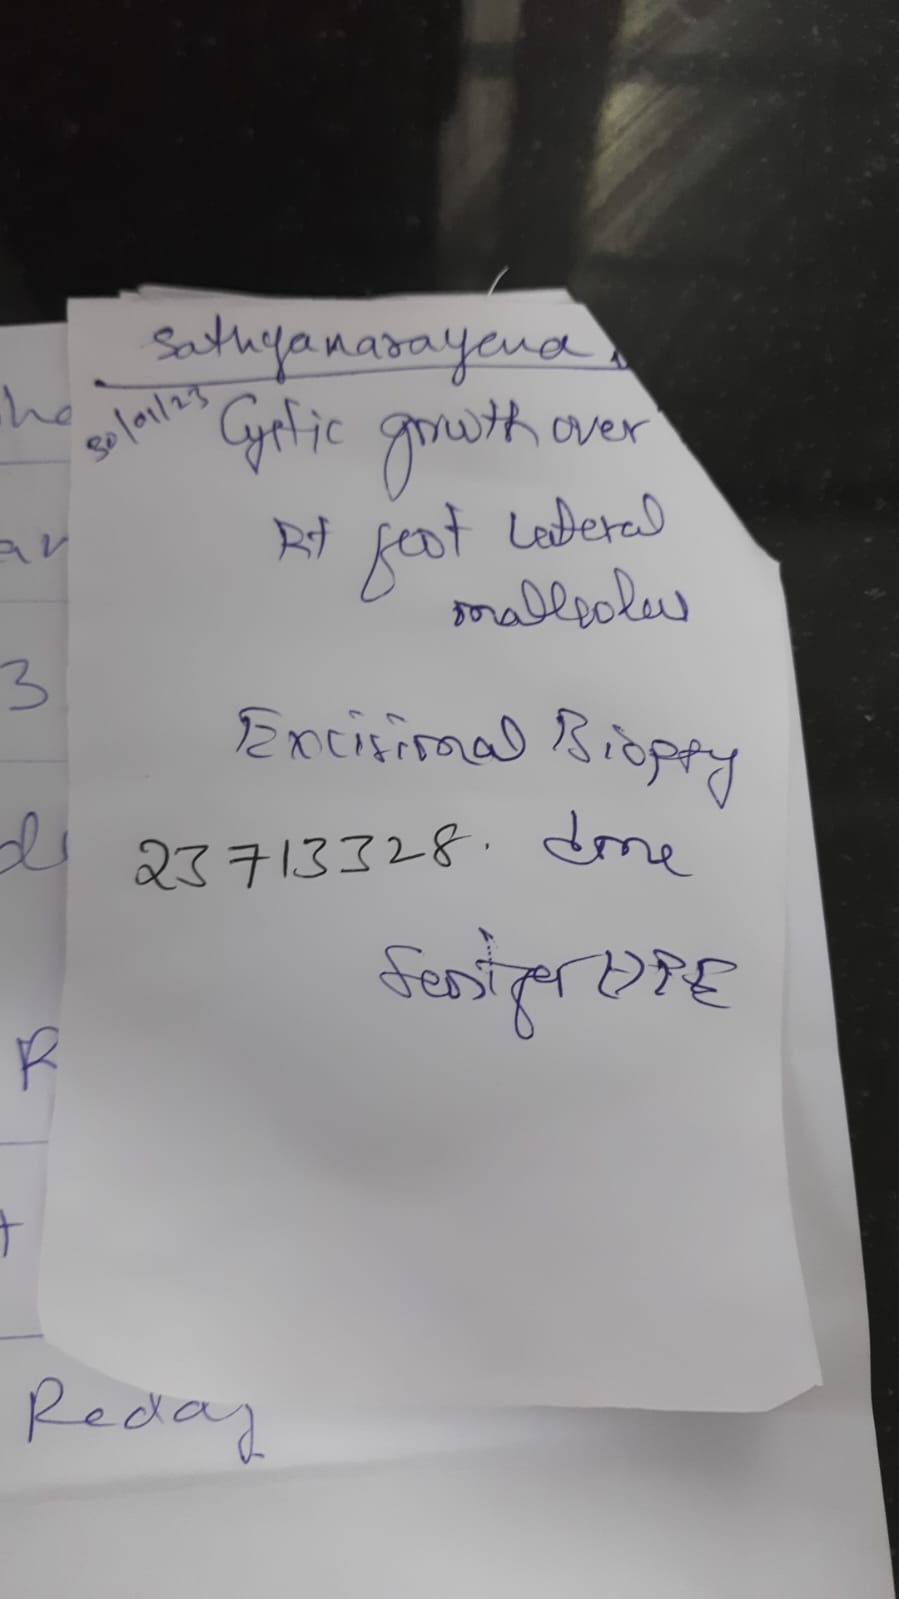 Sathyanarayana
30/01/23 Cystic growth over
Rt foot Lateral
malleolus
Excisional Biopsy
23713328. done
Sent for HPE
R
3
Reday